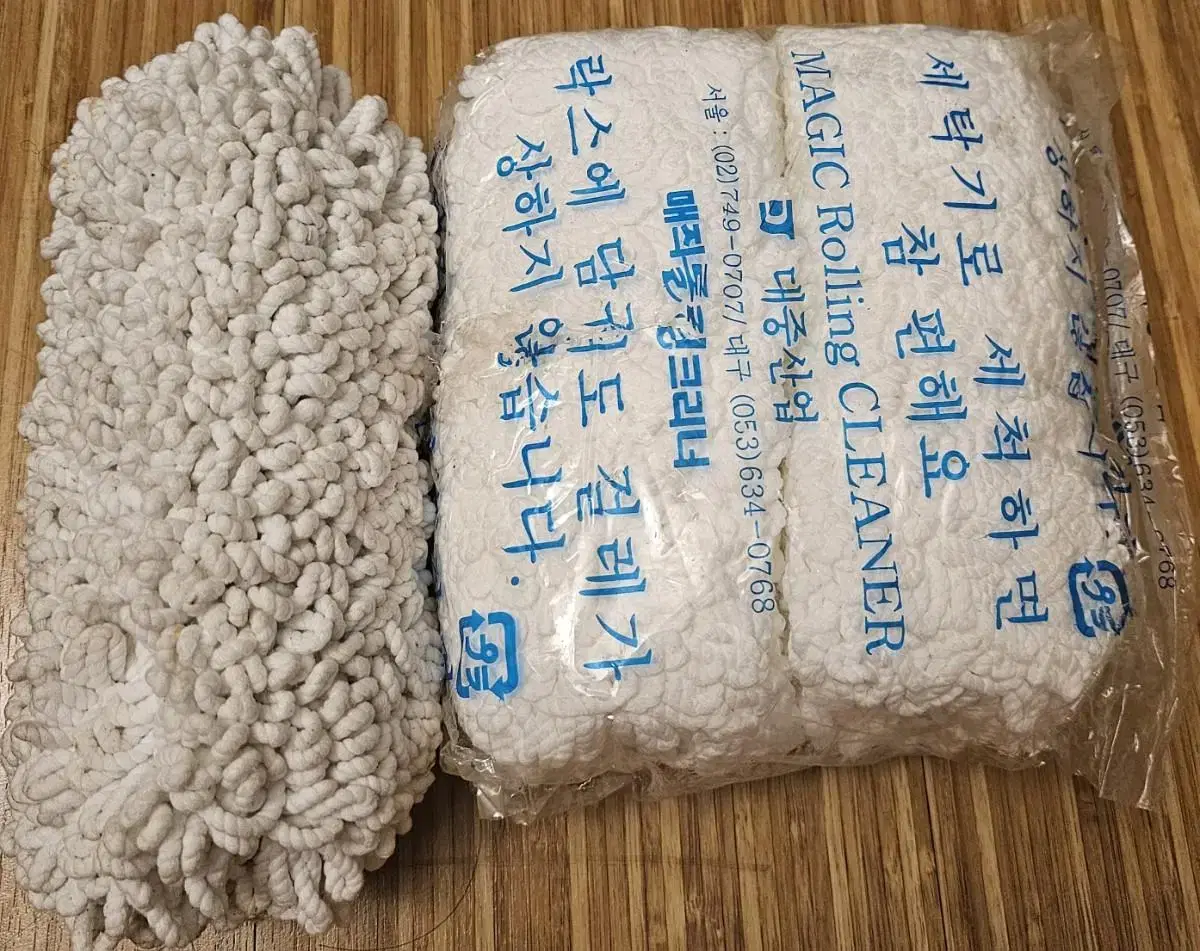 0707/대구 (053)634-0768
상하지 않습니다
세탁기로 세척하면
참 편해요
MAGIC Rolling CLEANER
대중산업
서울 : (02)749-0707/대구 (053)634-0768
매직롤링크리너
락스에 담궈도 걸레가
상하지 않습니다.